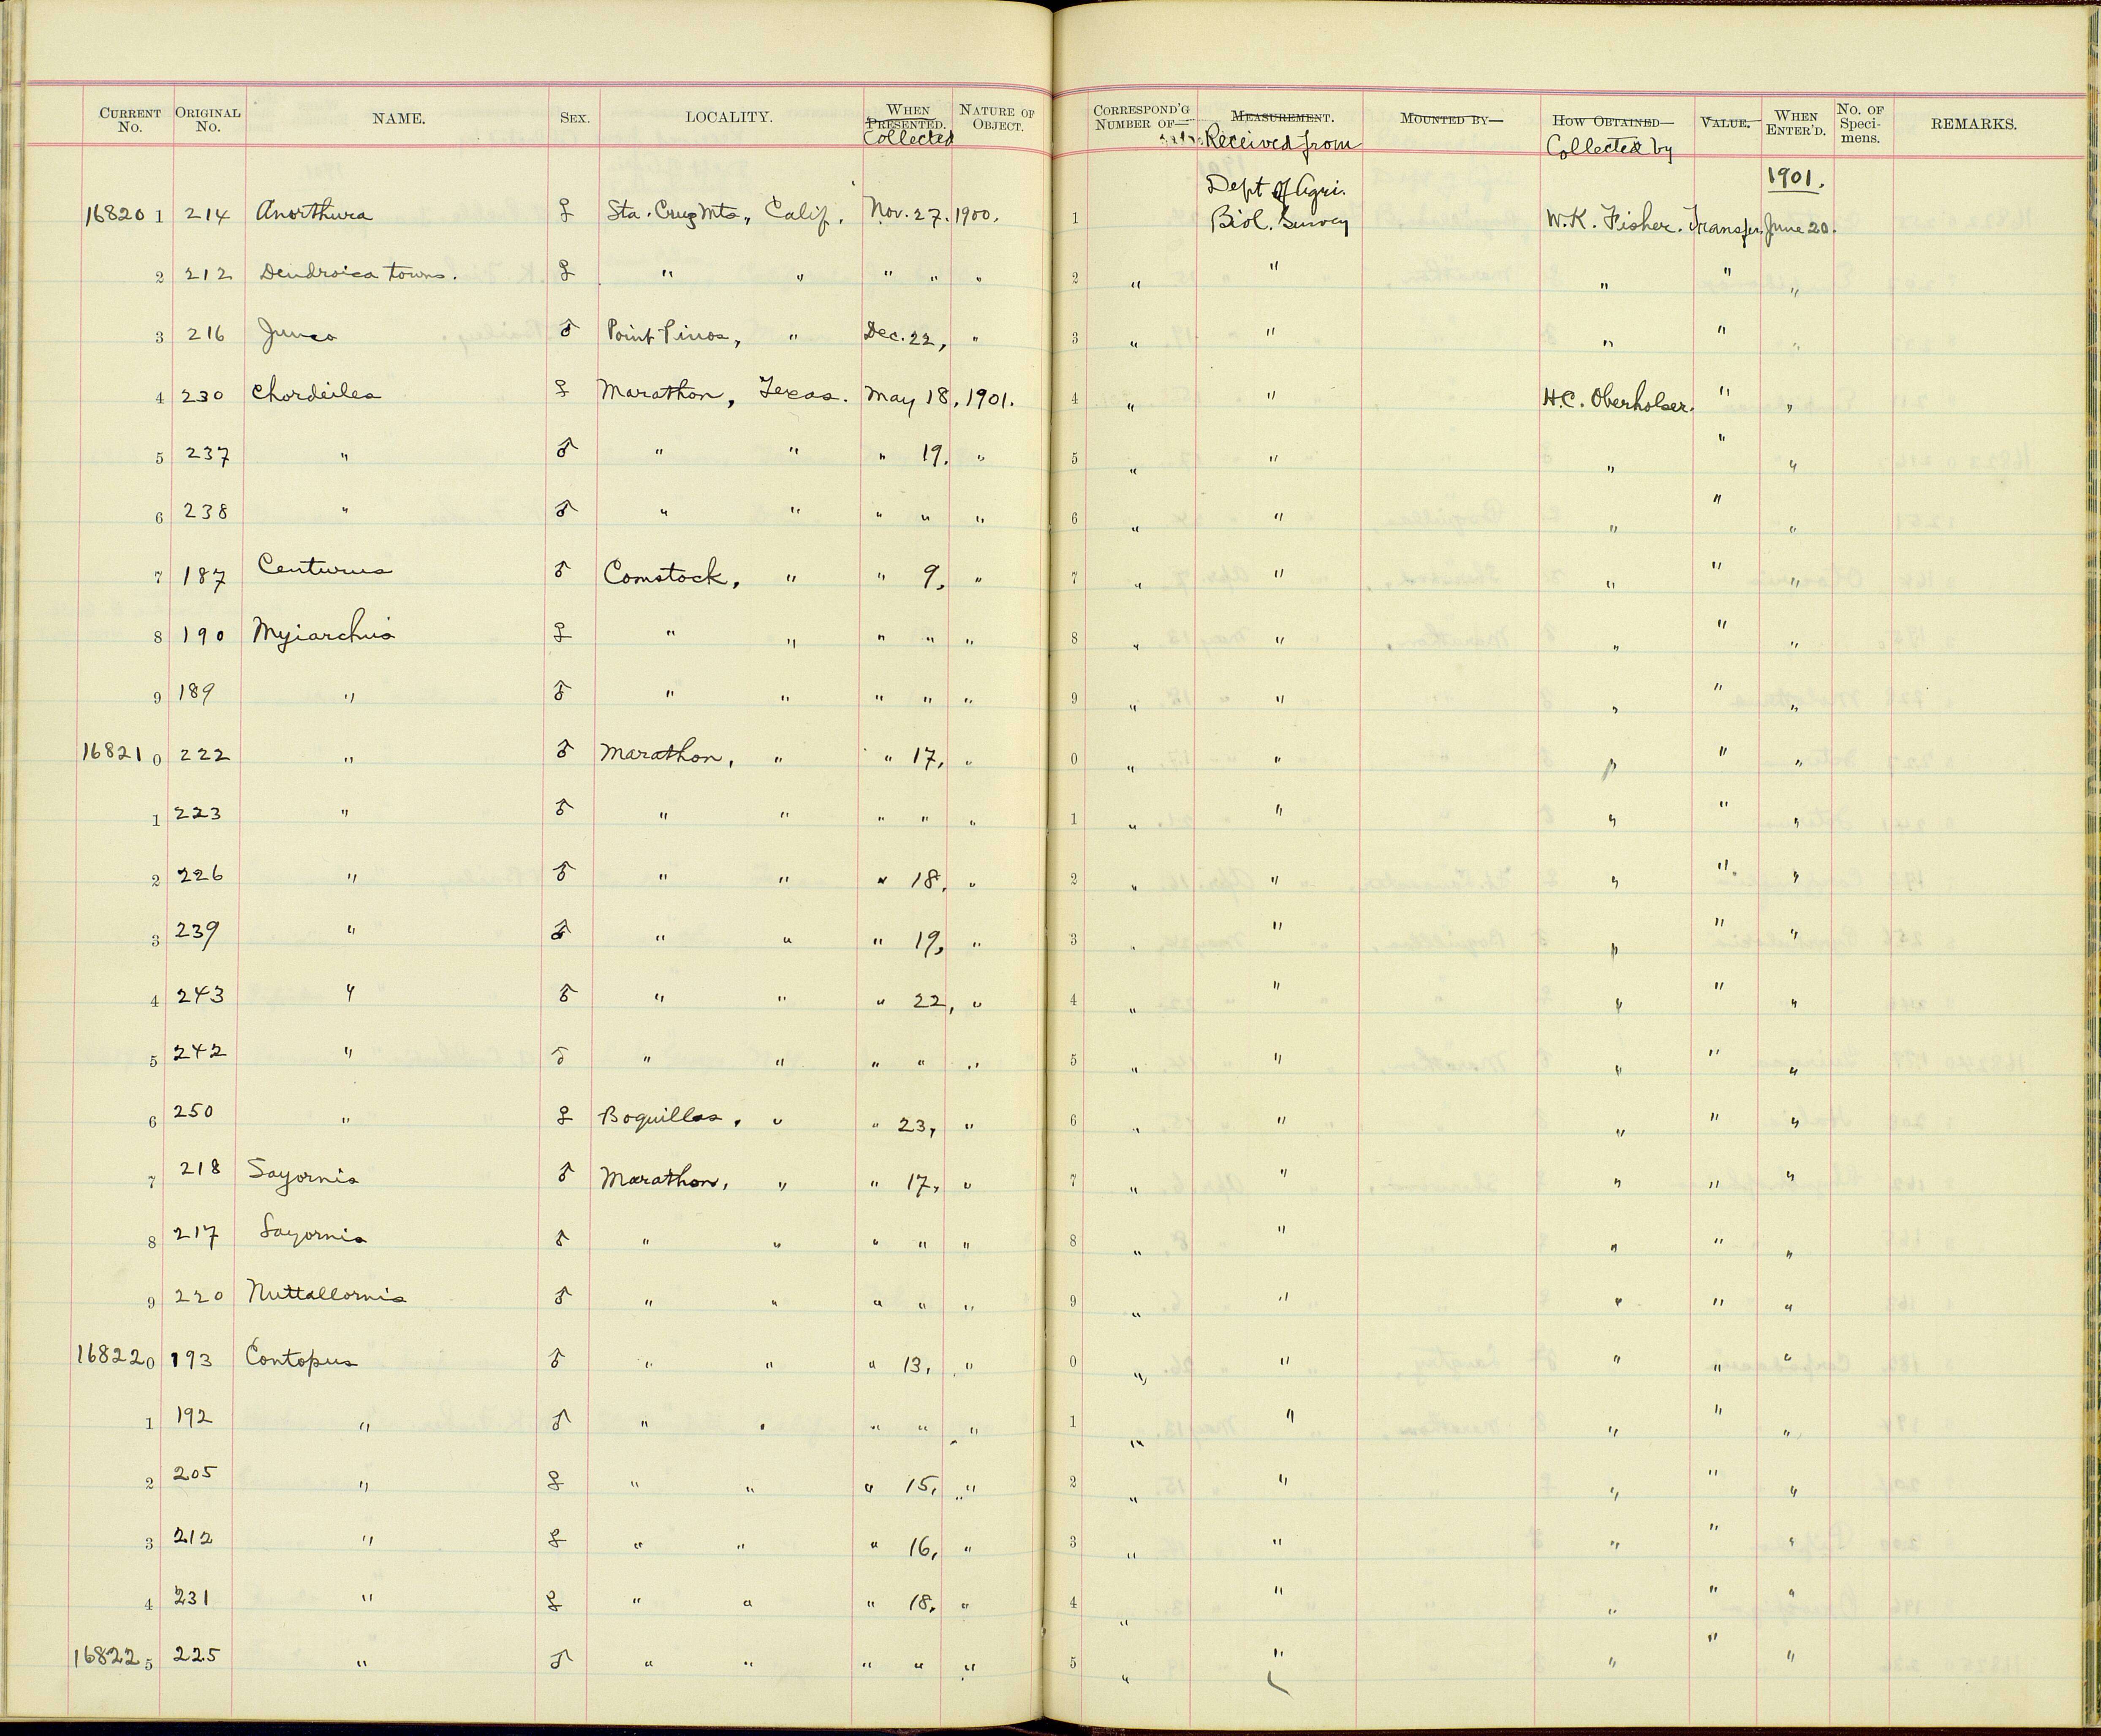 CURRENT No. ORIGINAL No. NAME. SEX. LOCALITY. WHEN PRESENTED. Collected NATURE OF OBJECT. CORRESPOND'G NUMBER OF— MEASUREMENT. Received from MOUNTED BY— HOW OBTAINED— Collected by VALUE. WHEN ENTER'D. No. OF Specimens. REMARKS.
Dept of Agri. 1901.
16820 1 214 Anorthura ♀ Sta. Cruz Mts., Calif. Nov. 27. 1900. 1 Biol. Survey W.K. Fisher. Transfer. June 20.
2 212 Dendroica towns. ♀ " " " " " 2 " " " " "
3 216 Junco ♂ Point Pinos, " Dec. 22, " 3 " " " " "
4 230 Chordeiles ♀ Marathon, Texas. May 18, 1901. 4 " " H.C. Oberholser. " "
5 237 " ♂ " " " 19. " 5 " " " " "
6 238 " ♂ " " " " " 6 " " " " "
7 187 Centurus ♂ Comstock, " " 9, " 7 " " " " "
8 190 Myiarchus ♀ " " " " " 8 " " " " "
9 189 " ♂ " " " " " 9 " " " " "
16821 0 222 " ♂ Marathon, " " 17, " 0 " " " " "
1 223 " ♂ " " " " " 1 " " " " "
2 226 " ♂ " " " 18, " 2 " " " " "
3 239 " ♂ " " " 19, " 3 " " " " "
4 243 " ♂ " " " 22, " 4 " " " " "
5 242 " ♂ " " " " " 5 " " " " "
6 250 " ♀ Boquillas, " " 23, " 6 " " " " "
7 218 Sayornis ♂ Marathon, " " 17, " 7 " " " " "
8 217 Sayornis ♂ " " " " " 8 " " " " "
9 220 Nuttallornis ♂ " " " " " 9 " " " " "
16822 0 193 Contopus ♂ " " " 13, " 0 " " " " "
1 192 " ♂ " " " " " 1 " " " " "
2 205 " ♀ " " " 15, " 2 " " " " "
3 212 " ♀ " " " 16, " 3 " " " " "
4 231 " ♀ " " " 18, " 4 " " " " "
16822 5 225 " ♂ " " " " " 5 " " " " "